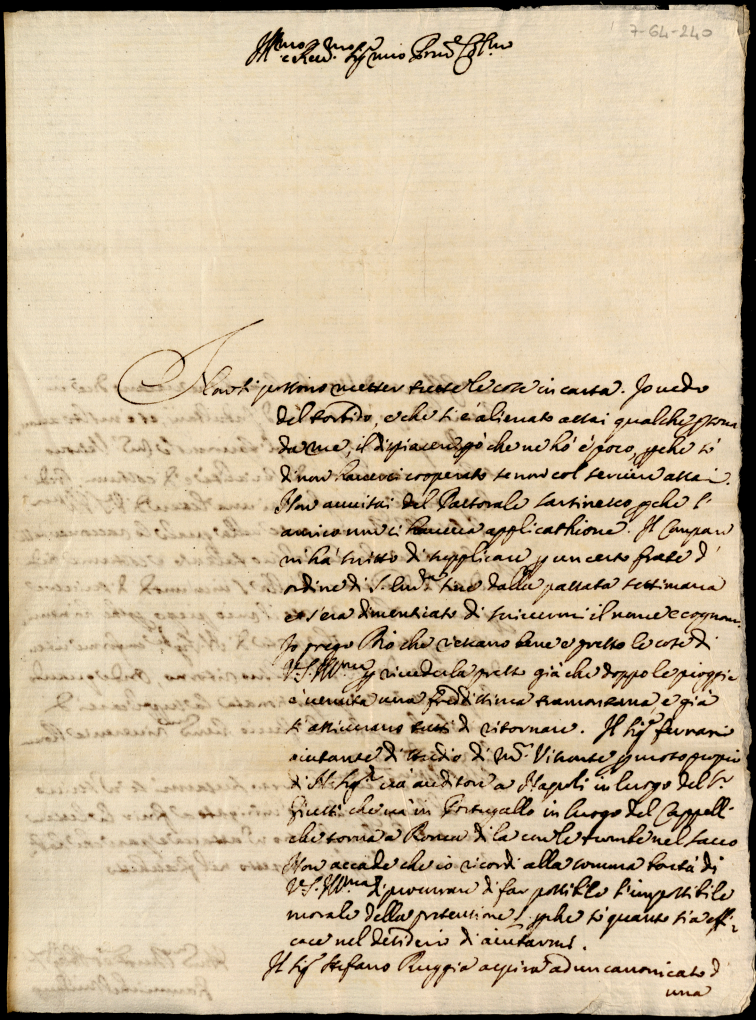 7-64-240
Ill.mo e Rev.mo Sig.r mio Pron.e Col.mo
Non si possono metter tutte le cose in carta. Io vedo
del torbido, e che si è alienato assai qualche persona
da me, il dispiacere però che ne hò è poco, perche sò
di non haverci cooperato se non col servire assai.
Non avvisai del Pastorale perche l'
amico non ci haveva applicathione. Il Compare
mi hà scritto di supplicare per un certo frate d'
ordine di S. Em.za sine dalla passata settimana
e s'era dimenticato di scrivermi il nome e cognome.
Io prego Dio che riescano bene e presto le cose di
V.S. Ill.ma per rivederla presto già che doppo le pioggie
è venuta una freddissima tramontana, e già
si assicurano tutti di ritornare. Il Sig.r Ferrari
aiutante di studio di M.r Visconte per moto proprio
di N. Sig.re và auditore a Napoli in luogo del S.r
Giusti che và in Portugallo in luogo del Cappelli
che torna a Roma di là con le trombe nel sacco
Non accade che io ricordi alla somma bontà di
V.S. Ill.ma di procurare di far possibile l'impossibile
morale della pretensione perche sò quanto sia effi-
cace nel desiderio di aiutarmi.
Il Sig.r Stefano Ruggia aspira ad un canonicato d'
una